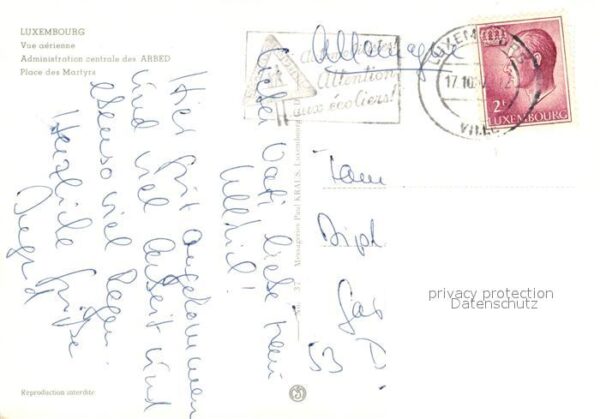 LUXEMBOURG
Vue aérienne
Administration centrale des ARBED
Place des Martyrs
Attention
aux écoliers!
LUXEMBOURG
VILLE
17.10
2F
LUXEMBOURG
Allemagne
Lieber Vati, liebe
Hier gut angekommen
und viel Arbeit und
ebenso viel Regen.
Herzliche Grüße
Ingrid
Messageries Paul KRAUS, Luxembourg
37
Dipl.
53
privacy protection
Datenschutz
Reproduction interdite